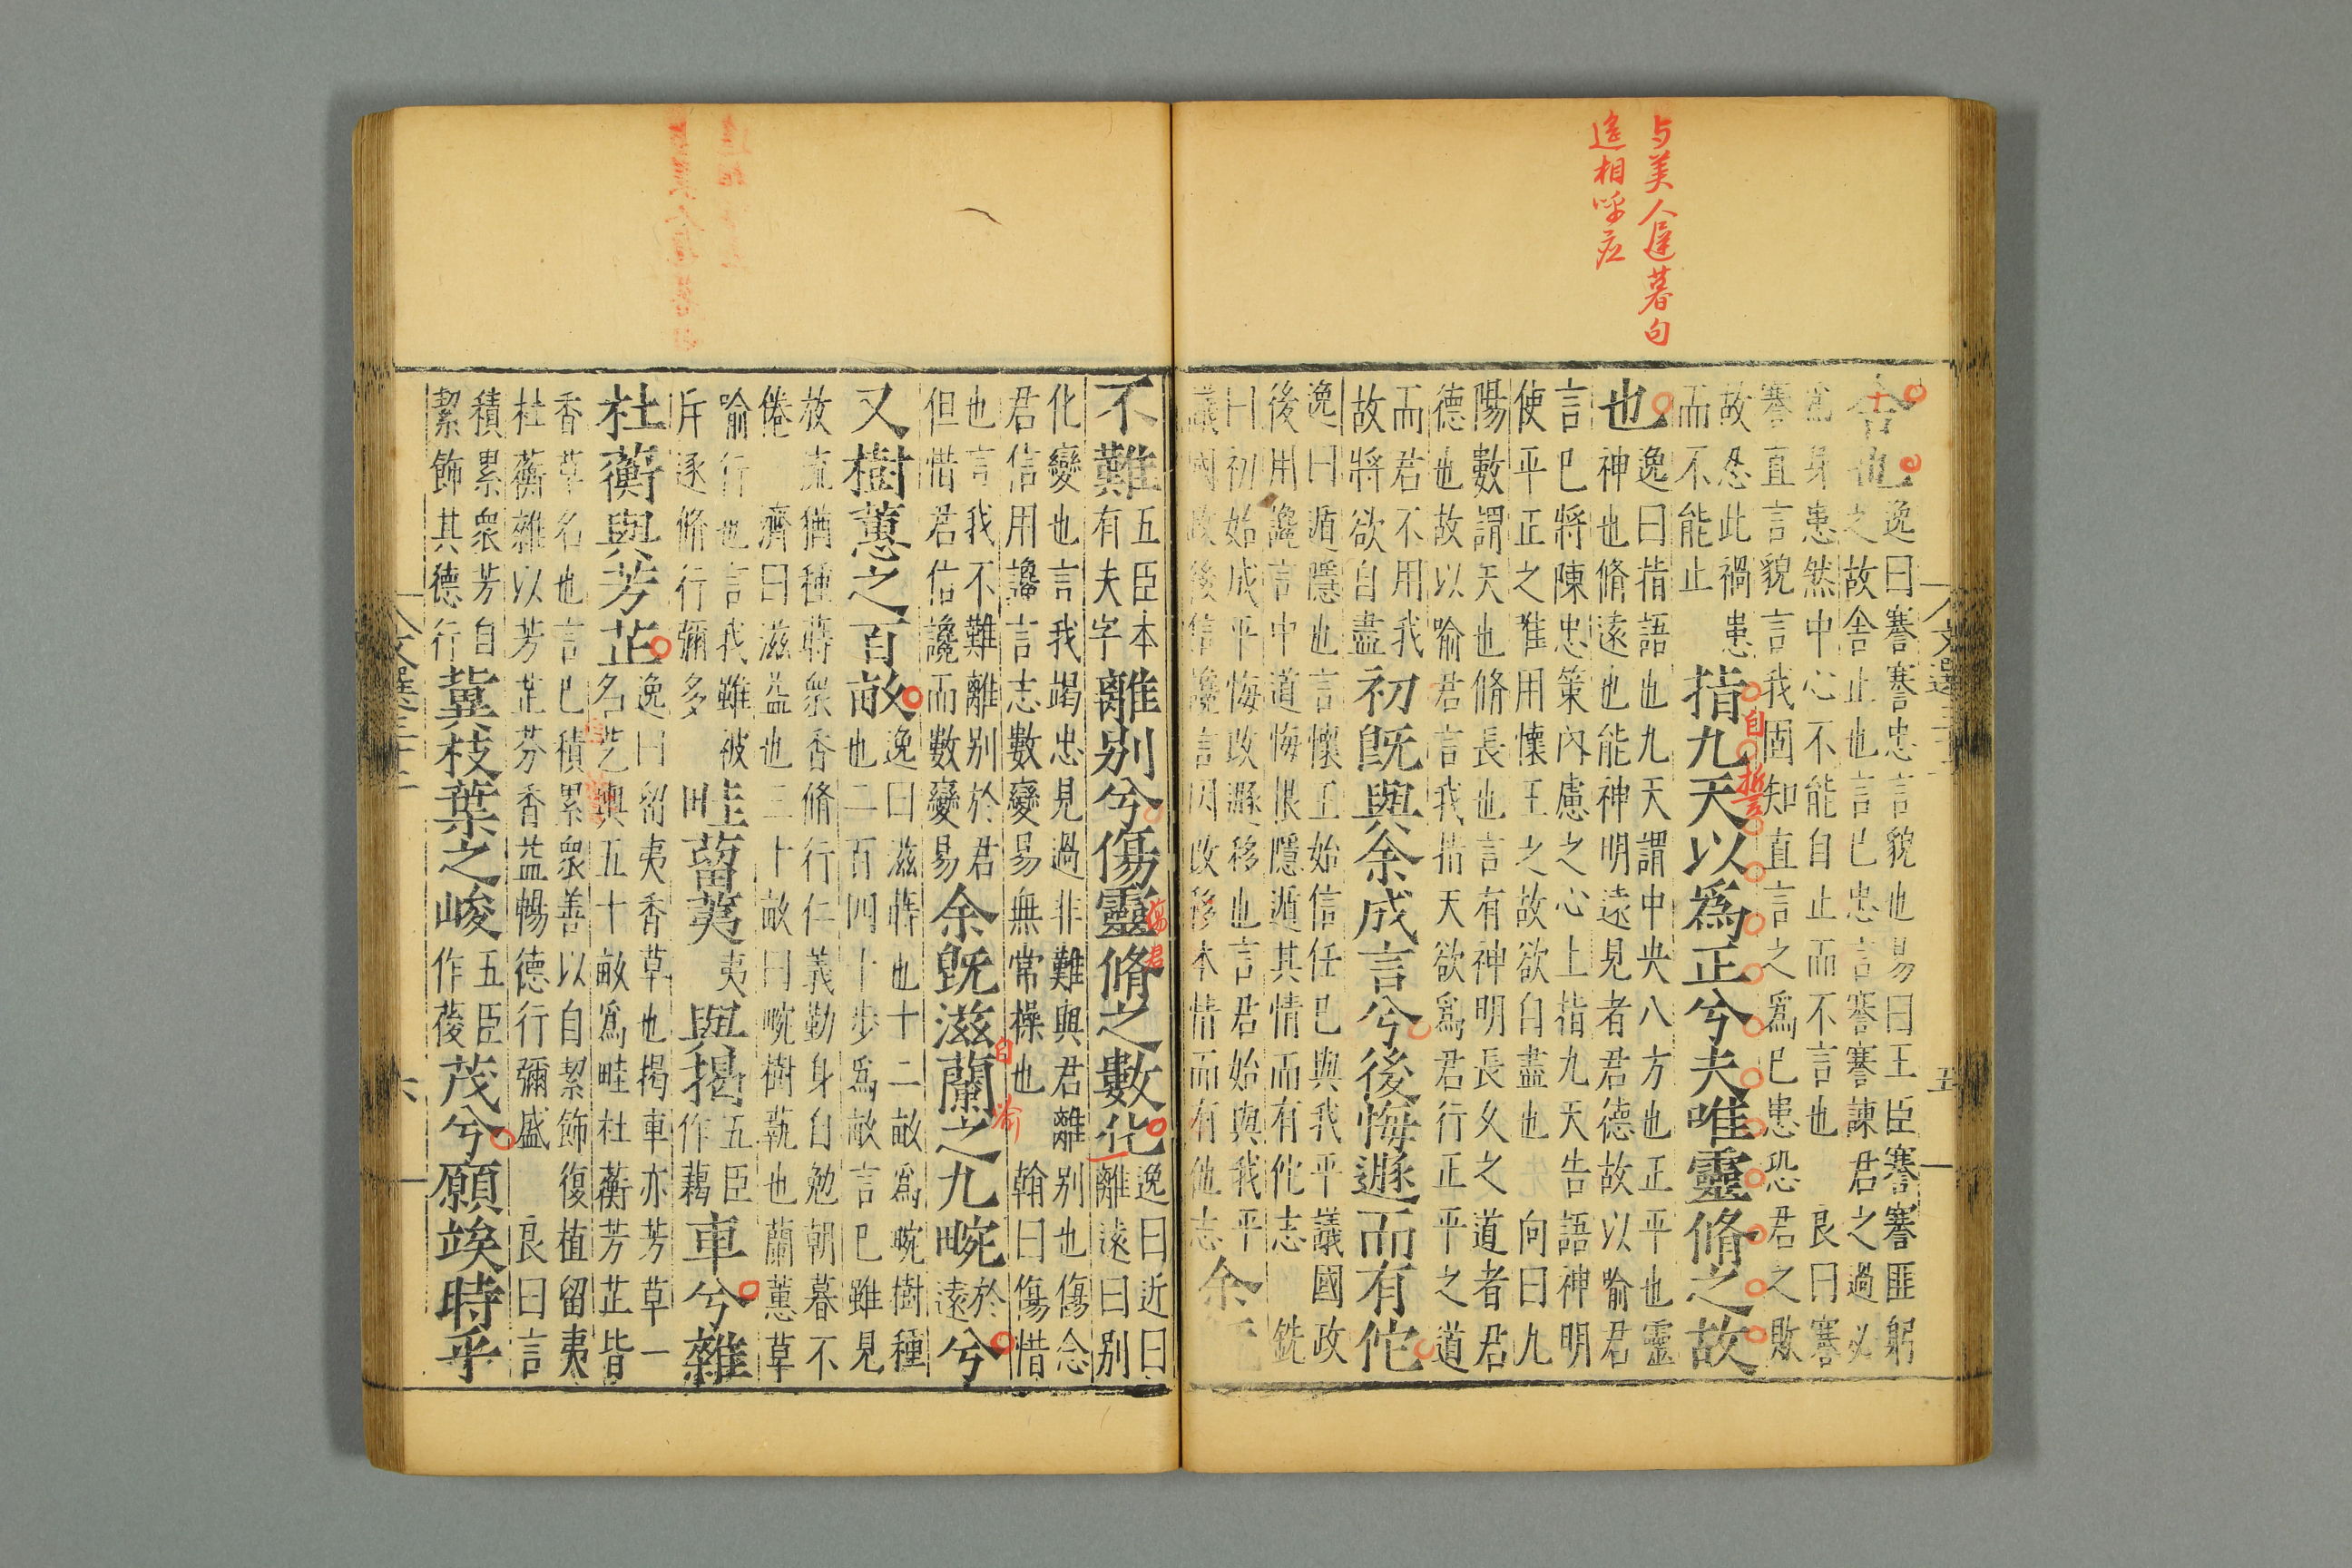 与美人遲暮句
遙相呼应
舍也
逸曰謇謇忠言貌也易曰王臣謇謇匪躬
之故舍止也言已忠言謇謇諫君之過必
爲身患然中心不能自止而不言也 良曰謇
謇直言貌言我固知直言之爲已患恐君之敗
故恐此禍患
而不能止
指九天以爲正兮夫唯靈脩之故
自
誓
也
逸曰指語也九天謂中央八方也正平也靈
神也脩遠也能神明遠見者君德故以喻君
言已將陳忠策內慮之心上指九天告語神明
使平正之惟用懷王之故欲自盡也 向曰九
陽數謂天也脩長也言有神明長久之道者君
德也故以喻君言我指天欲爲君行正平之道
而君不用我
故將欲自盡
初旣與余成言兮後悔遯而有佗
逸曰遁隱也言懷王始信任已與我平議國政
後用讒言中道悔恨隱遁其情而有佗志 銑
曰初始成平悔改遯移也言君始與我平
議國政後信讒言因改移本情而有他志
余
文選三十二
五
不難
五臣本
有夫字
離别兮傷靈脩之數化
傷君
逸曰近曰
離遠曰别
化變也言我竭忠見過非難與君離别也傷念
君信用讒言志數變易無常操也 翰曰傷惜
也言我不難離别於君
但惜君信讒而數變易
余旣滋蘭之九畹
自喻
於
遠
兮
又樹蕙之百畝
逸曰滋蒔也十二畝爲畹樹種
也二百四十步爲畝言已雖見
放流猶種蒔衆香脩行仁義勤身自勉朝暮不
倦 濟曰滋益也三十畝曰畹樹蓺也蘭蕙草
喻行也言我雖被
斥逐脩行彌多
畦蒥荑
夷
與揭
五臣
作藒
車兮雜
杜蘅與芳芷
逸曰留夷香草也揭車亦芳草一
名芞輿五十畝爲畦杜蘅芳芷皆
香草名也言已積累衆善以自絜飾復植留夷
杜蘅雜以芳芷芬香益暢德行彌盛 良曰言
積累衆芳自
絜飾其德行
冀枝葉之峻
五臣
作葰
茂兮願竢時乎
文選三十二
六